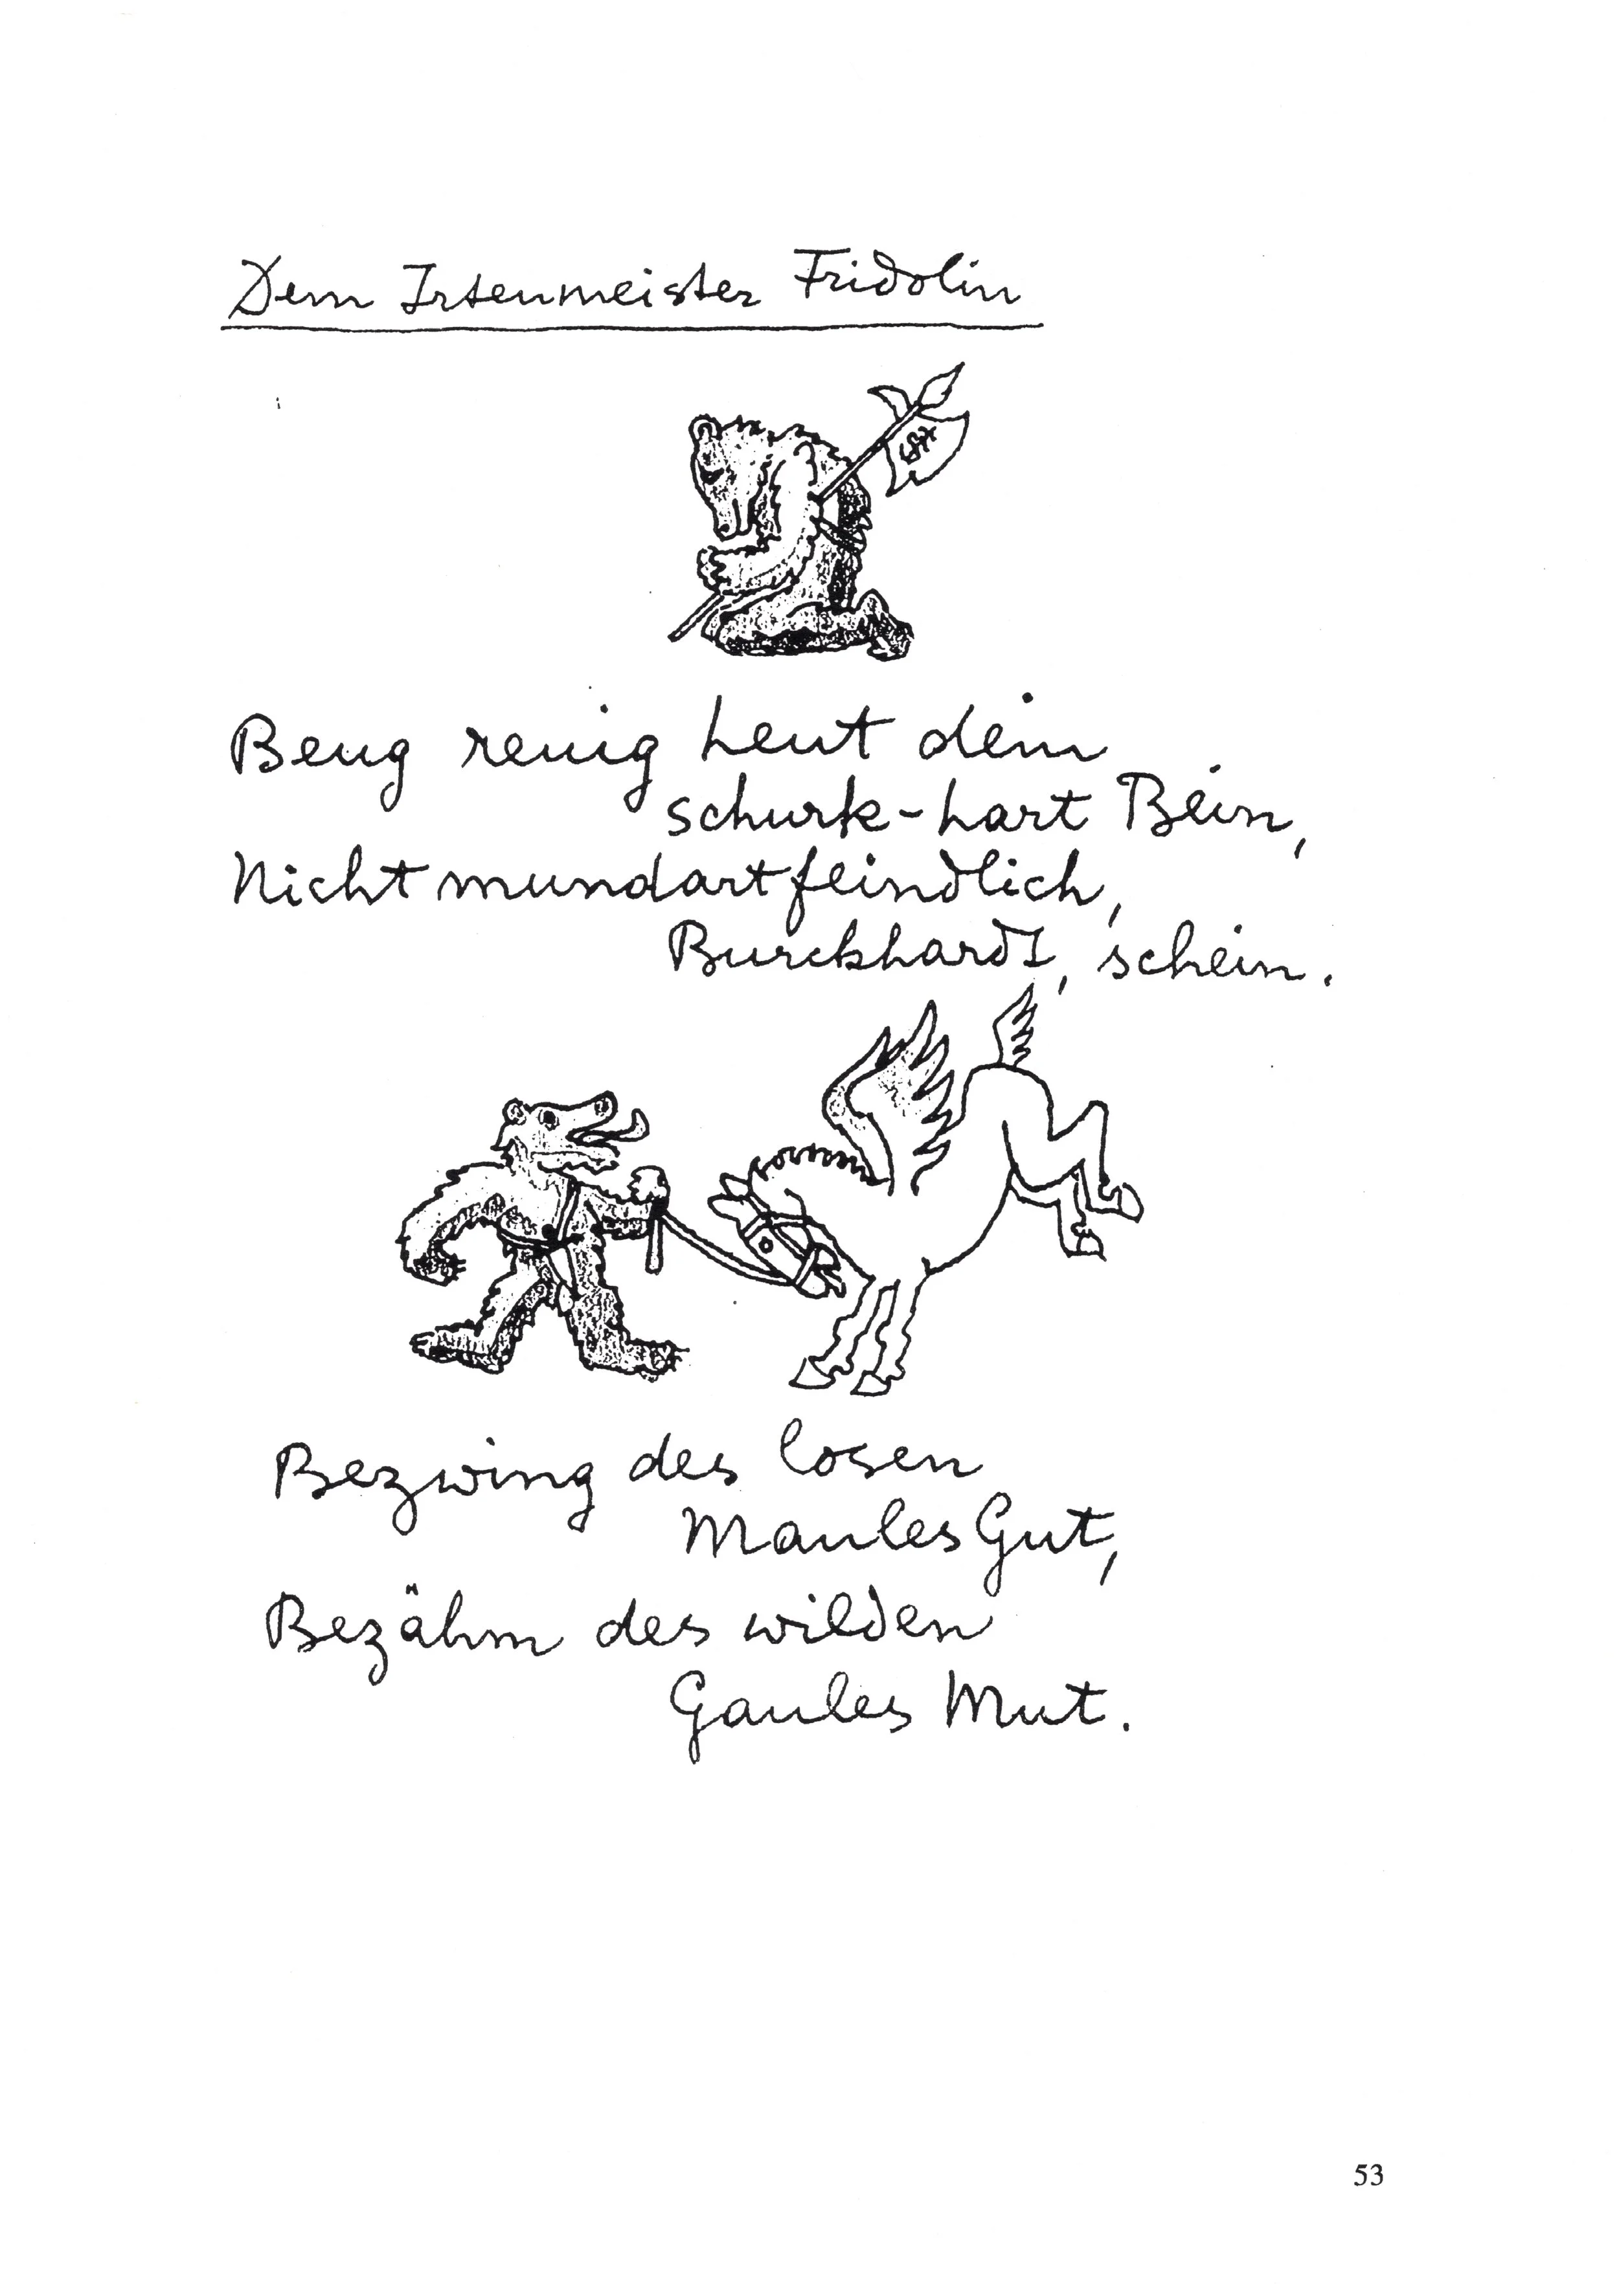 Dem Irtenmeister Fridolin
Beug reuig heut dein
schurk-hart Bein,
Nicht mundartfeindlich,
Burckhardt, schein.
Bezwing des losen
Maules Gut,
Bezähm des wilden
Gaules Mut.
53